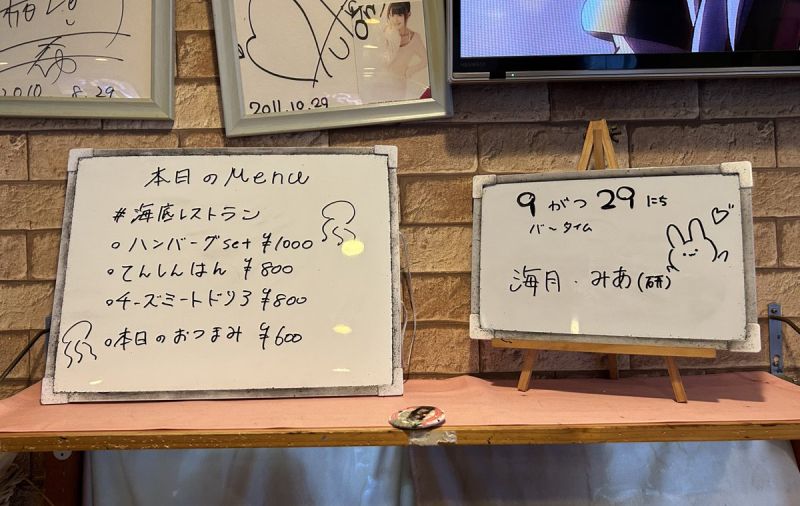 2010 8.29
2011.10.29
本日のMenu
#海底レストラン
○ハンバーグset ¥1000
○てんしんはん ¥800
○チーズミートドリア ¥800
○本日のおつまみ ¥600
9がつ29にち
バータイム
海月・みあ(研)